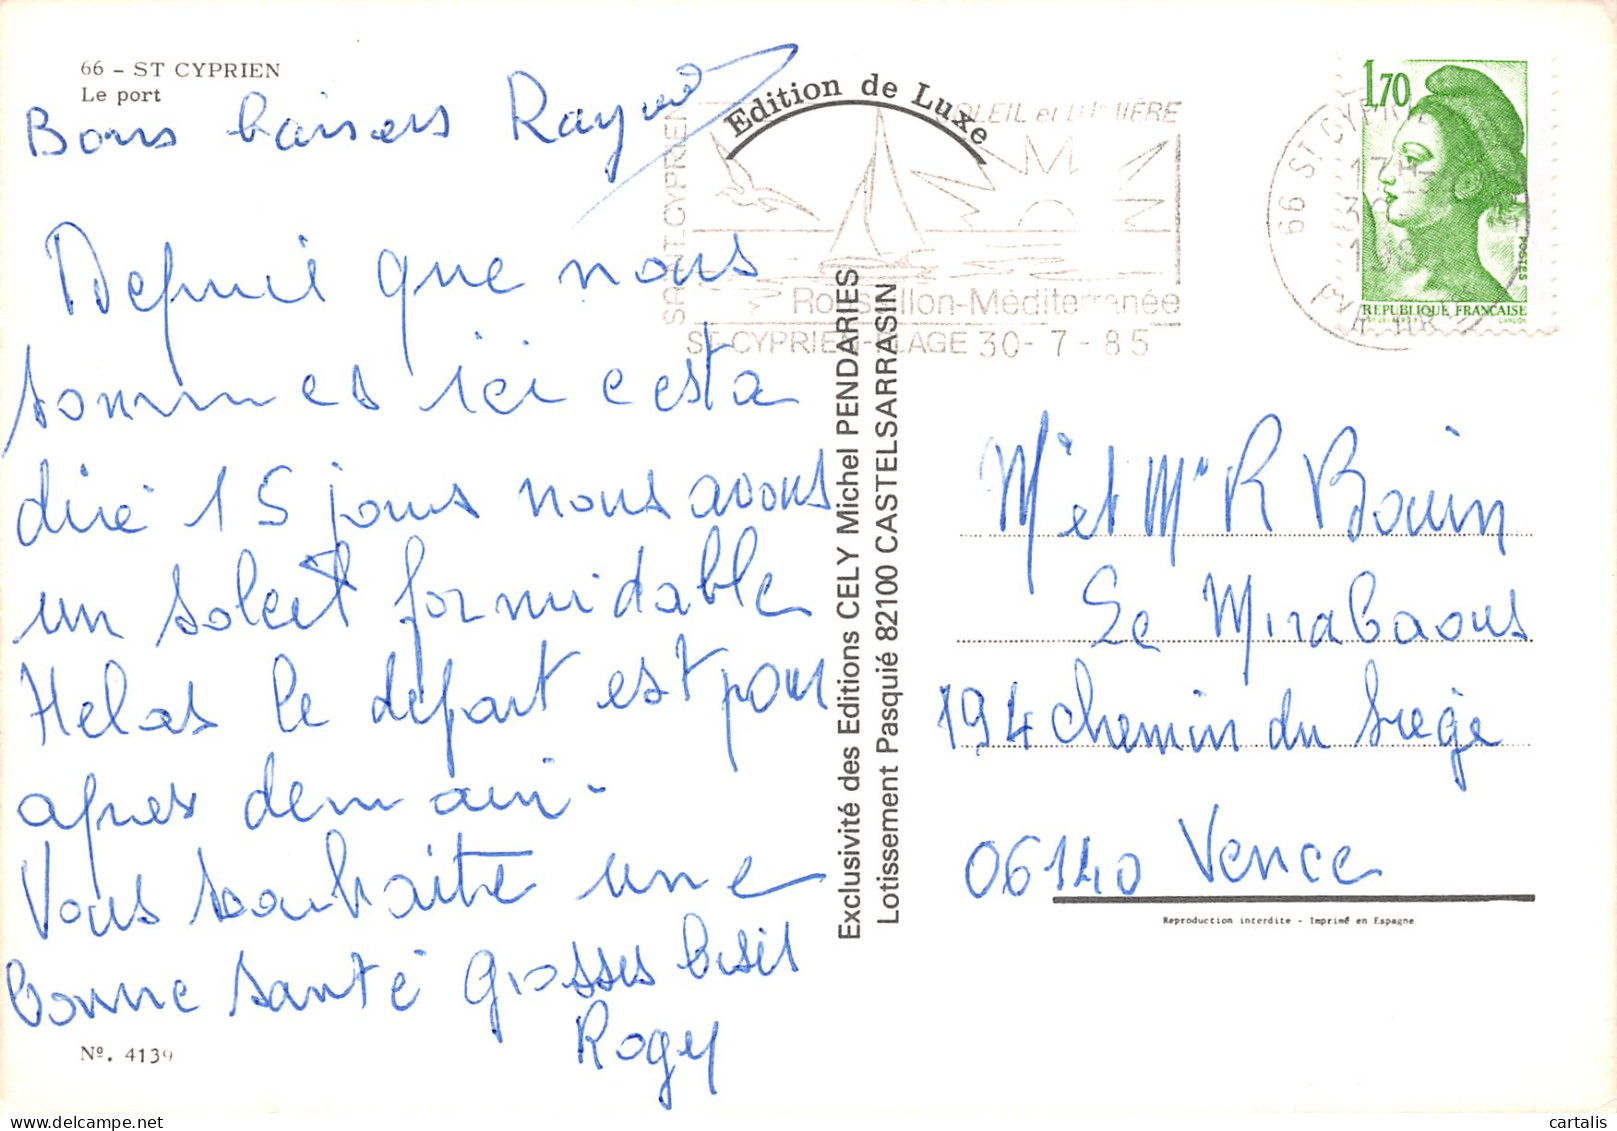 66 - ST CYPRIEN
Le port
Bons baisers
Depuis que nous
sommes ici cesta
dire 15 jours nous avons
un soleit formidable
Helas le depart est pour
apres demain -
Vous souhaite une
bonne santé grosses bises
Rogy
Nº. 4139
Edition de Luxe
SAINT-CYPRIEN
SOLEIL et LUMIÈRE
Roussillon-Méditerranée
ST-CYPRIEN-PLAGE 30-7-85
Exclusivité des Editions CELY Michel PENDARIES
Lotissement Pasquié 82100 CASTELSARRASIN
66 ST CYPRIEN
17H
1,70
POSTES
REPUBLIQUE FRANÇAISE
GANDON
Mr et Me R Bouin
Le Mirabaous
194 chemin du siège
06140 Vence
Reproduction interdite - Imprimé en Espagne
cartalis